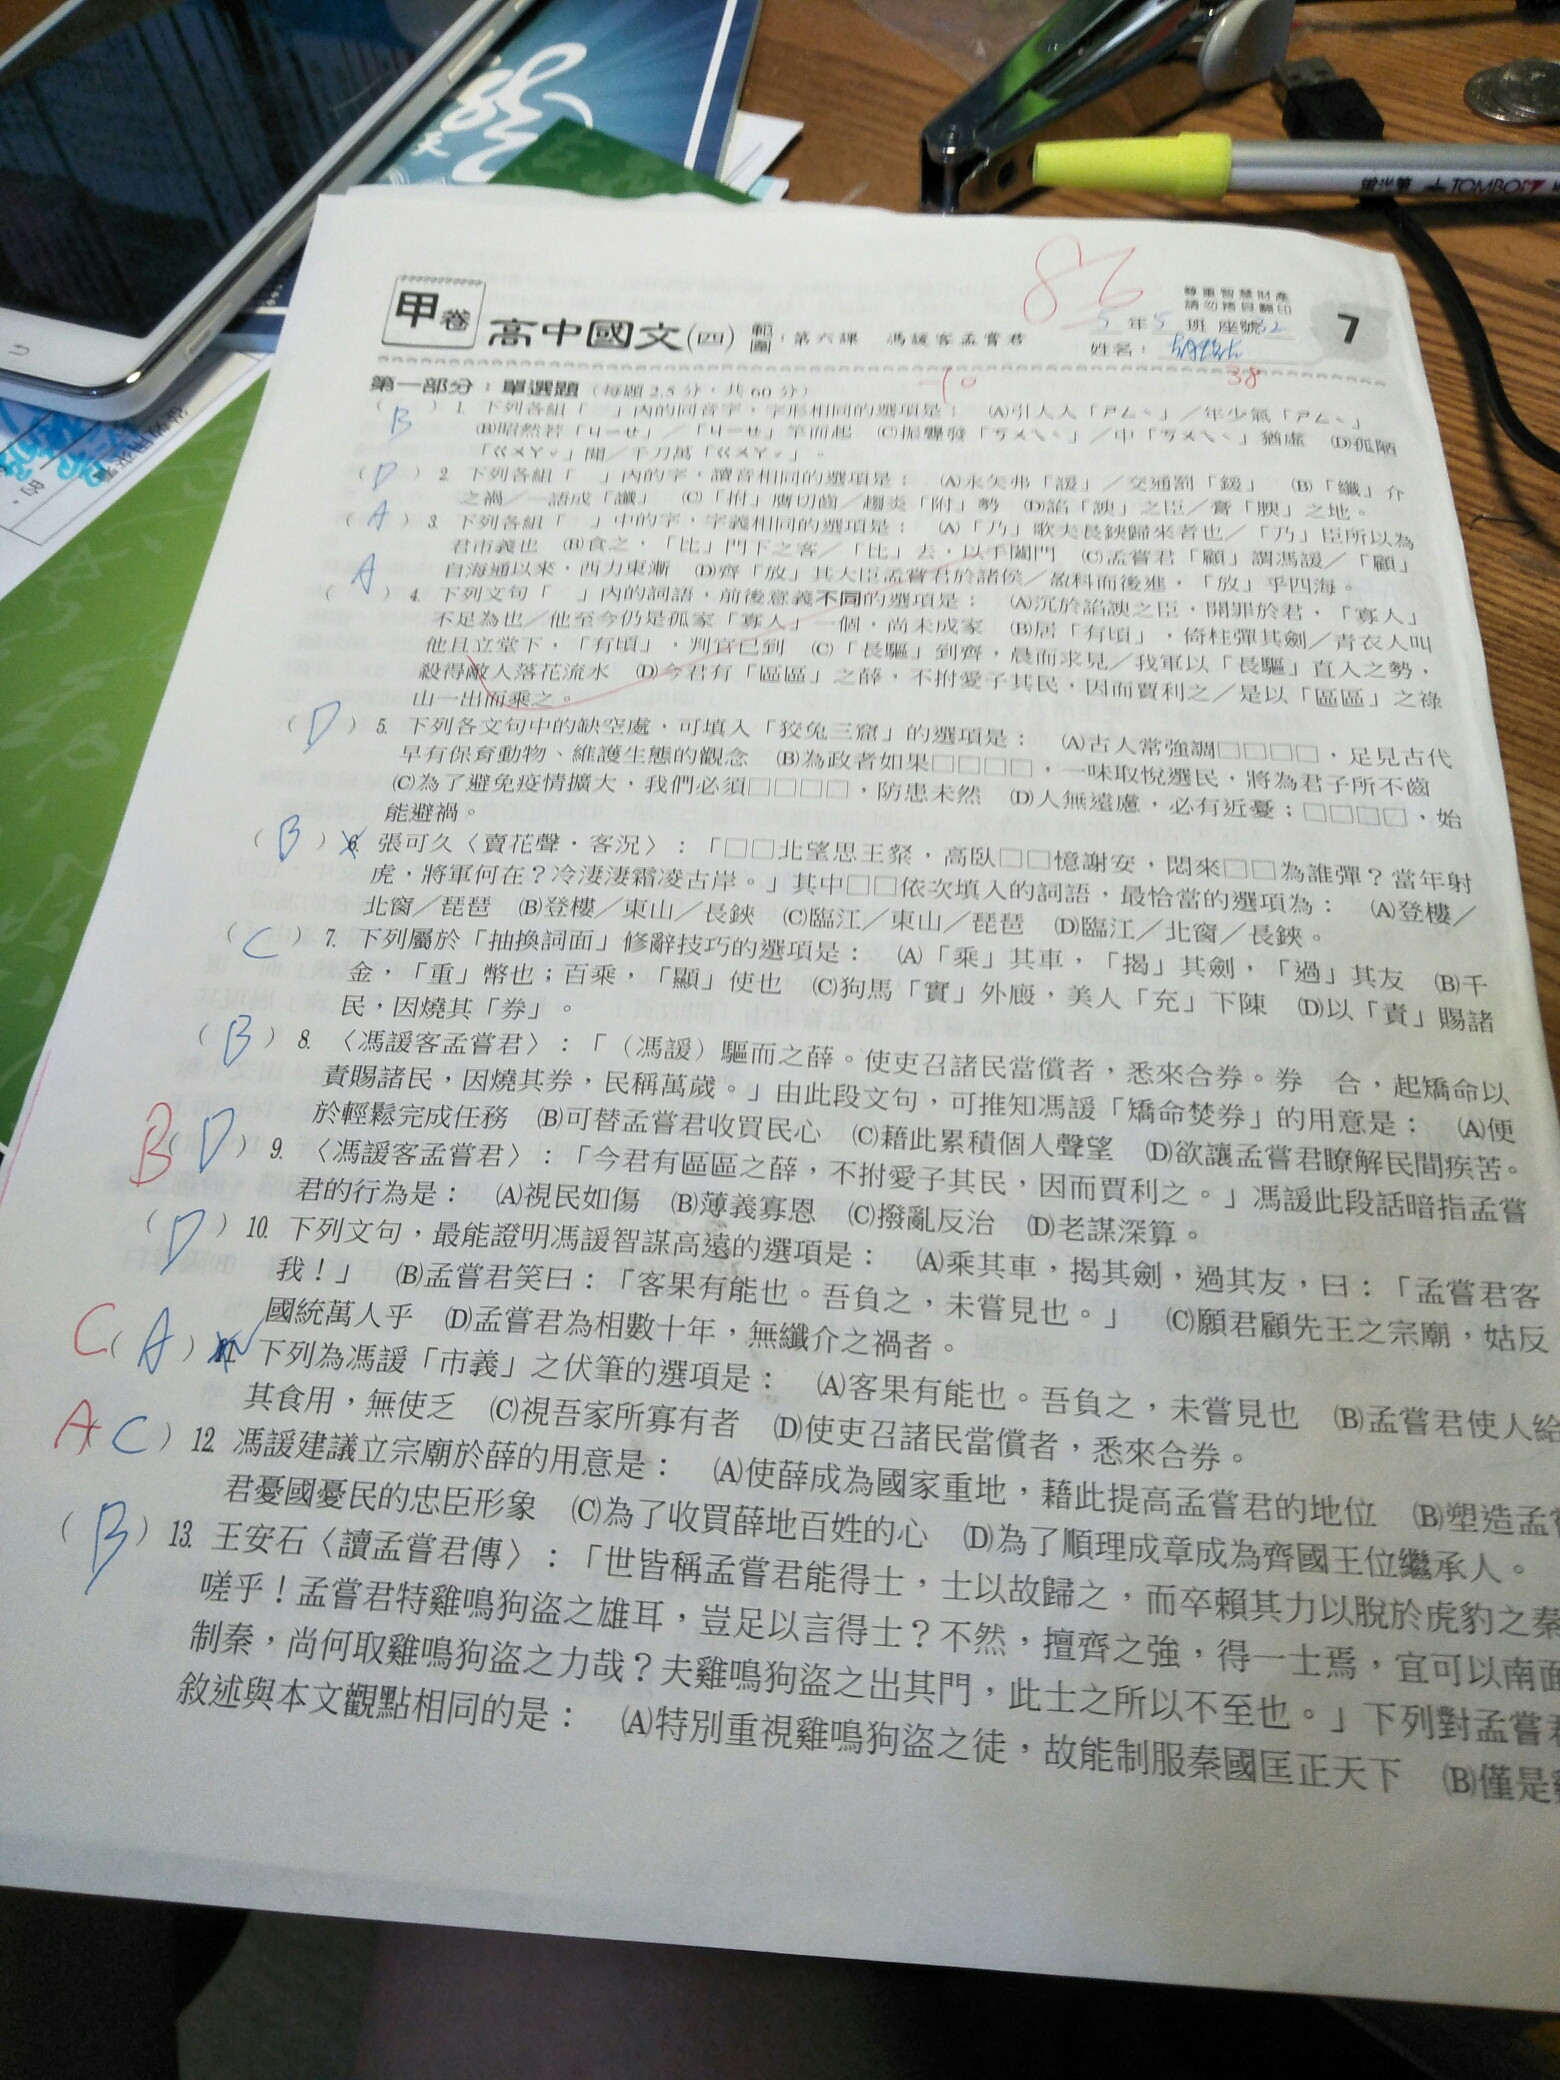 TOMBOW
86
尊重智慧財產
請勿拷貝翻印
甲卷 高中國文(四) 範圍：第六課 馮諼客孟嘗君
5年5班 座號32
姓名：
7
-10
38
第一部分：單選題（每題2.5分，共60分）
（B）1. 下列各組「　」內的同音字，字形相同的選項是： (A)引人入「ㄕㄥˋ」／年少氣「ㄕㄥˋ」
(B)昭然若「ㄐㄧㄝ」／「ㄐㄧㄝ」竿而起 (C)振聾發「ㄎㄨㄟˋ」／中「ㄎㄨㄟˋ」猶虛 (D)孤陋
「ㄍㄨㄚˇ」聞／千刀萬「ㄍㄨㄚˇ」。
（D）2. 下列各組「　」內的字，讀音相同的選項是： (A)永矢弗「諼」／交通罰「鍰」 (B)「纖」介
之禍／一語成「讖」 (C)「拊」膺切齒／趨炎「附」勢 (D)諂「諛」之臣／膏「腴」之地。
（A）3. 下列各組「　」中的字，字義相同的選項是： (A)「乃」歌夫長鋏歸來者也／「乃」臣所以為
君市義也 (B)食之，「比」門下之客／「比」去，以手闔門 (C)孟嘗君「顧」謂馮諼／「顧」
自海通以來，西力東漸 (D)齊「放」其大臣孟嘗君於諸侯／盈科而後進，「放」乎四海。
（A）4. 下列文句「　」內的詞語，前後意義不同的選項是： (A)沉於諂諛之臣，開罪於君，「寡人」
不足為也／他至今仍是孤家「寡人」一個，尚未成家 (B)居「有頃」，倚柱彈其劍／青衣人叫
他且立堂下，「有頃」，判官已到 (C)「長驅」到齊，晨而求見／我軍以「長驅」直入之勢，
殺得敵人落花流水 (D)今君有「區區」之薛，不拊愛子其民，因而賈利之／是以「區區」之祿
山一出而乘之。
（D）5. 下列各文句中的缺空處，可填入「狡兔三窟」的選項是： (A)古人常強調□□□□，足見古代
早有保育動物、維護生態的觀念 (B)為政者如果□□□□，一味取悅選民，將為君子所不齒
(C)為了避免疫情擴大，我們必須□□□□，防患未然 (D)人無遠慮，必有近憂；□□□□，始
能避禍。
（B）6. 張可久〈賣花聲．客況〉：「□□北望思王粲，高臥□□憶謝安，悶來□□為誰彈？當年射
虎，將軍何在？冷淒淒霜凌古岸。」其中□□依次填入的詞語，最恰當的選項為： (A)登樓／
北窗／琵琶 (B)登樓／東山／長鋏 (C)臨江／東山／琵琶 (D)臨江／北窗／長鋏。
（C）7. 下列屬於「抽換詞面」修辭技巧的選項是： (A)「乘」其車，「揭」其劍，「過」其友 (B)千
金，「重」幣也；百乘，「顯」使也 (C)狗馬「實」外廄，美人「充」下陳 (D)以「責」賜諸
民，因燒其「券」。
（B）8. 〈馮諼客孟嘗君〉：「（馮諼）驅而之薛。使吏召諸民當償者，悉來合券。券　合，起矯命以
責賜諸民，因燒其券，民稱萬歲。」由此段文句，可推知馮諼「矯命焚券」的用意是： (A)便
於輕鬆完成任務 (B)可替孟嘗君收買民心 (C)藉此累積個人聲望 (D)欲讓孟嘗君瞭解民間疾苦。
B（D）9. 〈馮諼客孟嘗君〉：「今君有區區之薛，不拊愛子其民，因而賈利之。」馮諼此段話暗指孟嘗
君的行為是： (A)視民如傷 (B)薄義寡恩 (C)撥亂反治 (D)老謀深算。
（D）10. 下列文句，最能證明馮諼智謀高遠的選項是： (A)乘其車，揭其劍，過其友，曰：「孟嘗君客
我！」 (B)孟嘗君笑曰：「客果有能也。吾負之，未嘗見也。」 (C)願君顧先王之宗廟，姑反
國統萬人乎 (D)孟嘗君為相數十年，無纖介之禍者。
C（A）11. 下列為馮諼「市義」之伏筆的選項是： (A)客果有能也。吾負之，未嘗見也 (B)孟嘗君使人給
其食用，無使乏 (C)視吾家所寡有者 (D)使吏召諸民當償者，悉來合券。
A（C）12. 馮諼建議立宗廟於薛的用意是： (A)使薛成為國家重地，藉此提高孟嘗君的地位 (B)塑造孟嘗
君憂國憂民的忠臣形象 (C)為了收買薛地百姓的心 (D)為了順理成章成為齊國王位繼承人。
（B）13. 王安石〈讀孟嘗君傳〉：「世皆稱孟嘗君能得士，士以故歸之，而卒賴其力以脫於虎豹之秦
嗟乎！孟嘗君特雞鳴狗盜之雄耳，豈足以言得士？不然，擅齊之強，得一士焉，宜可以南面
制秦，尚何取雞鳴狗盜之力哉？夫雞鳴狗盜之出其門，此士之所以不至也。」下列對孟嘗君
敘述與本文觀點相同的是： (A)特別重視雞鳴狗盜之徒，故能制服秦國匡正天下 (B)僅是